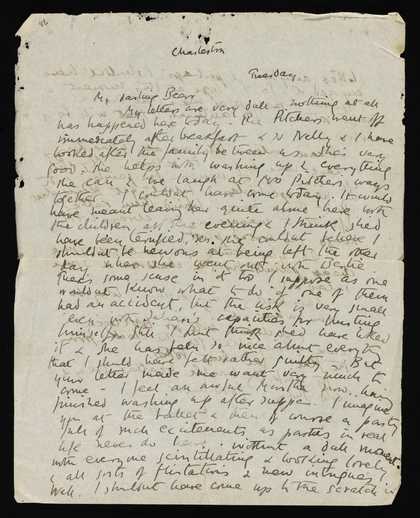 Charleston
Tuesday
My darling Bear
My letters are very dull & nothing at all
has happened here today. The Pitchers went off
immediately after breakfast & Nelly & I have
looked after the family between us. She's very
good. She helps with washing up & everything
she can & we laugh at Mrs Pitcher's ways
together. I couldn't have come today. It would
have meant leaving her quite alone here with
the children all the evening & I think she'd
have been terrified.
shouldn't be nervous at being left the other
day when she went out with
some sense in it too I suppose as one
wouldn't know what to do if one of them
had an accident, but the risk is very small
even with Julian's capacities for hurting
himself. Still I don't think she'd have liked
it & she has been so nice about everything
that I should have felt rather guilty. But
your letter made me want very much to
come. I feel an awful now, having
finished washing up after supper. I imagine
you at the Ballet & then of course a party
full of such excitements as parties in real
life never do have, without a dull moment
with everyone scintillating & looking lovely
& all sorts of flirtations & new intrigues.
Well. I shouldn't have come up to the scratch